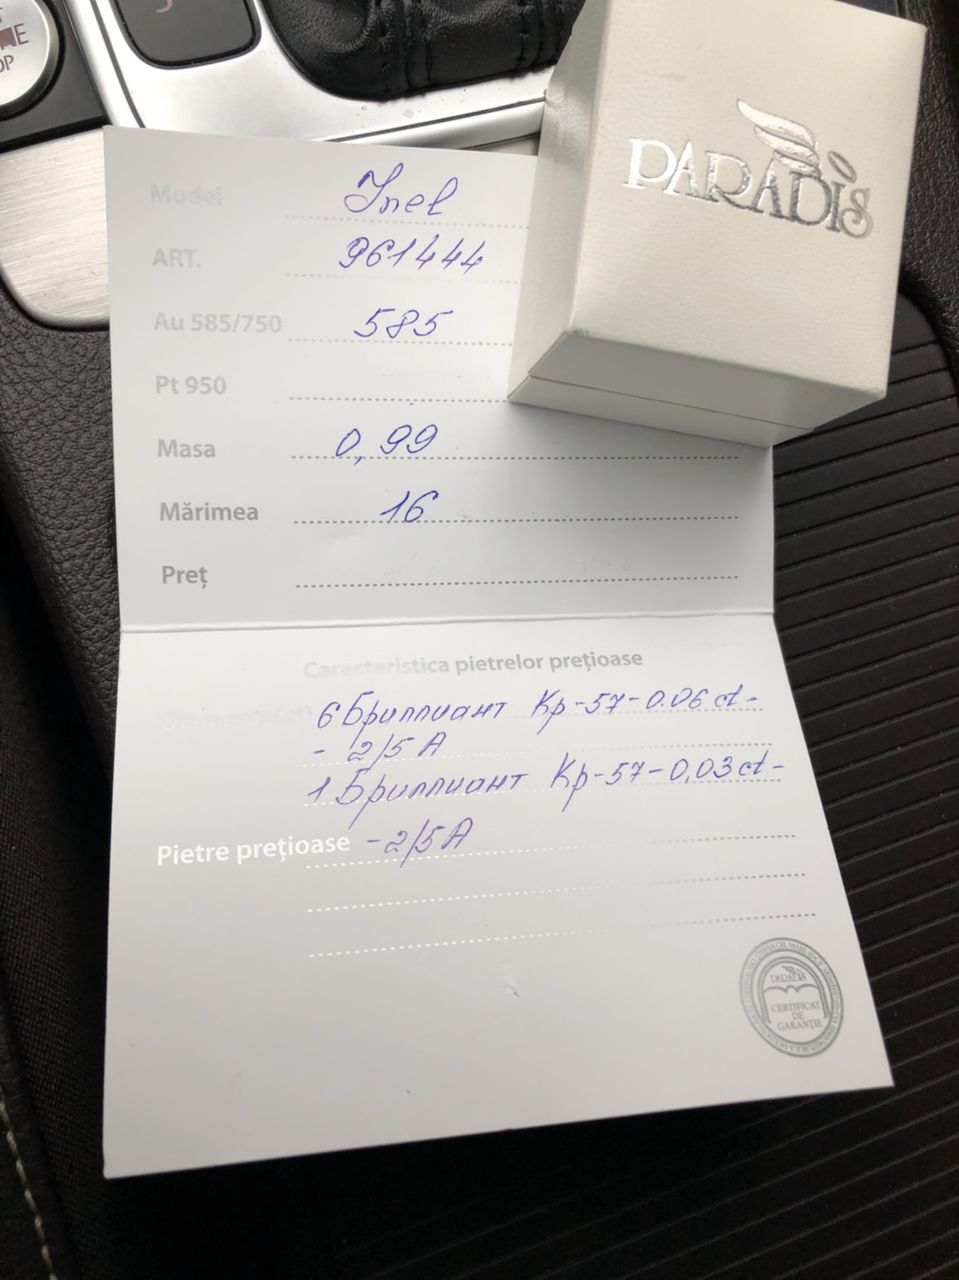 PARADIS
Model Inel
ART. 961444
Au 585/750 585
Pt 950
Masa 0,99
Mărimea 16
Preț
Caracteristica pietrelor prețioase
6 Бриллиант Кр-57-0.06 ct-
- 2/5 А
1 Бриллиант Кр-57-0,03 ct-
Pietre prețioase -2/5 А
PARADIS
CERTIFICAT
DE
GARANȚIE